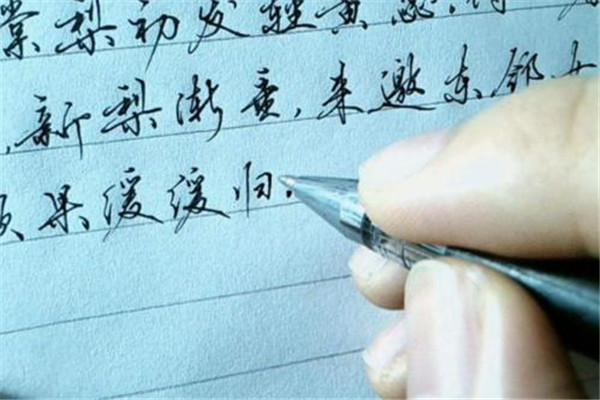 棠梨初发轻黄
,新梨渐重,来邀东邻女
果缓缓归.